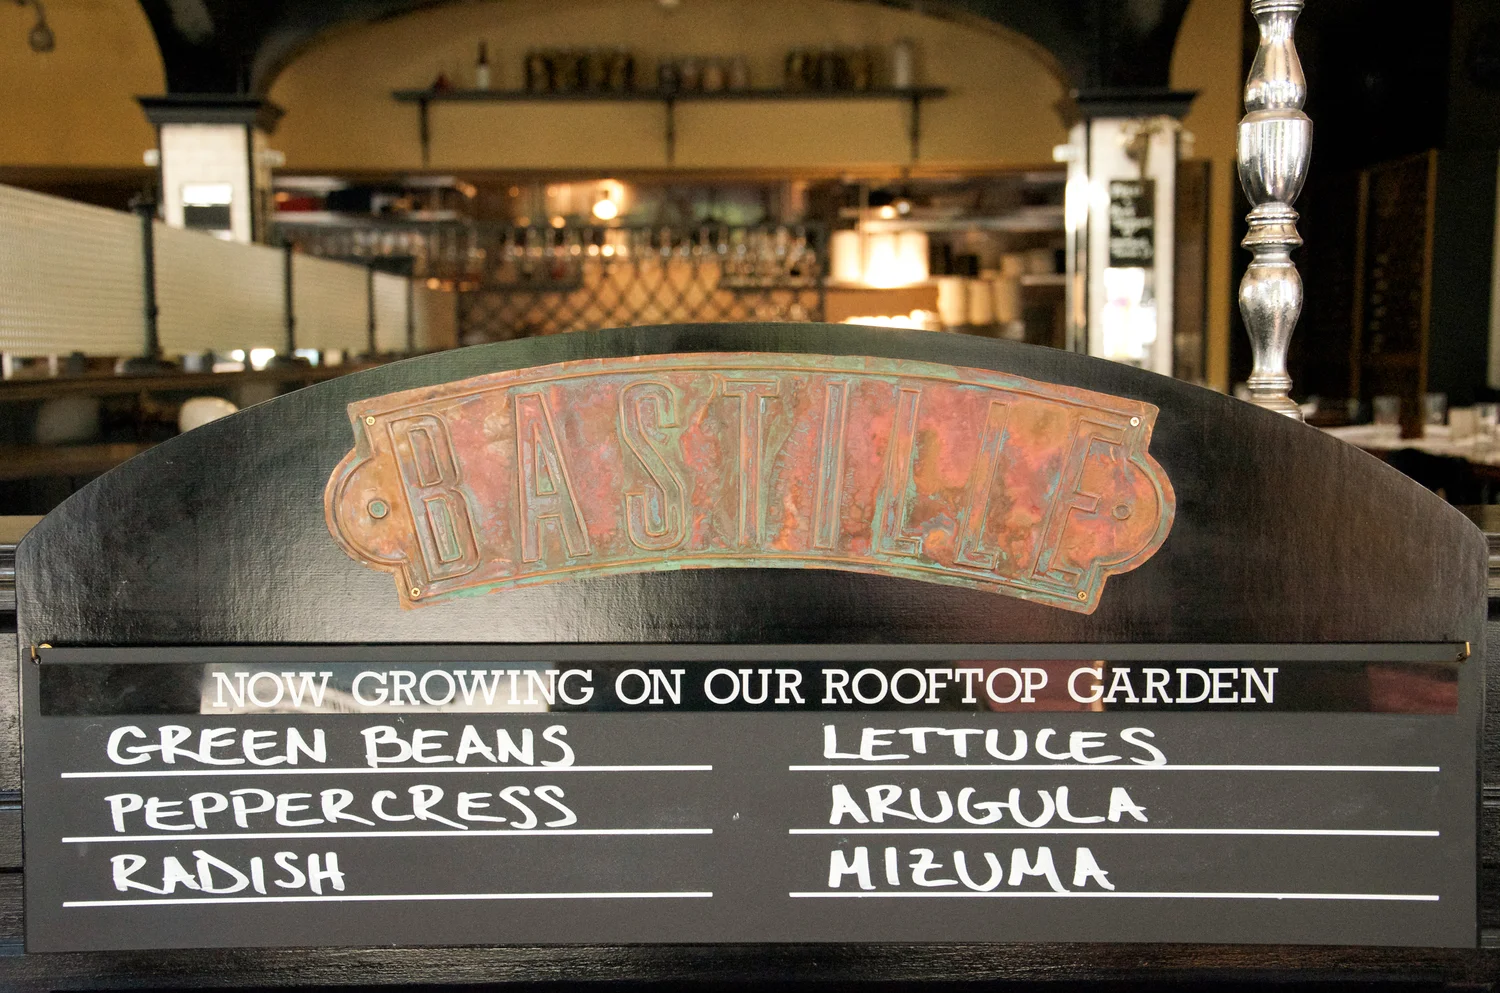 BASTILLE
NOW GROWING ON OUR ROOFTOP GARDEN
GREEN BEANS
PEPPERCRESS
RADISH
LETTUCES
ARUGULA
MIZUMA